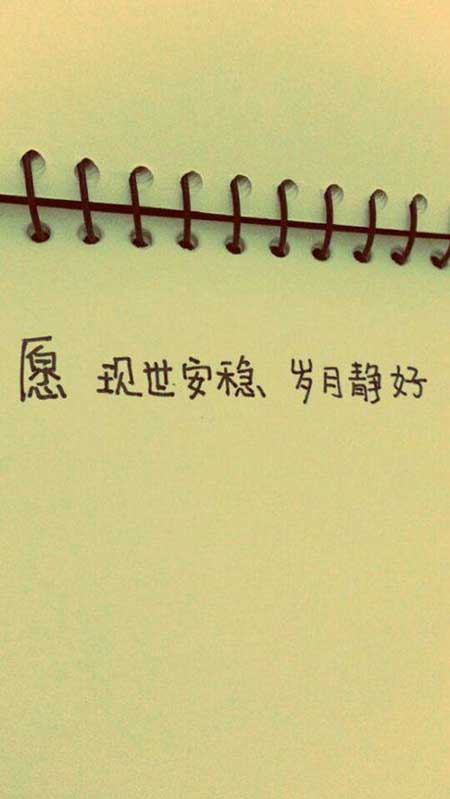 愿 现世安稳、岁月静好